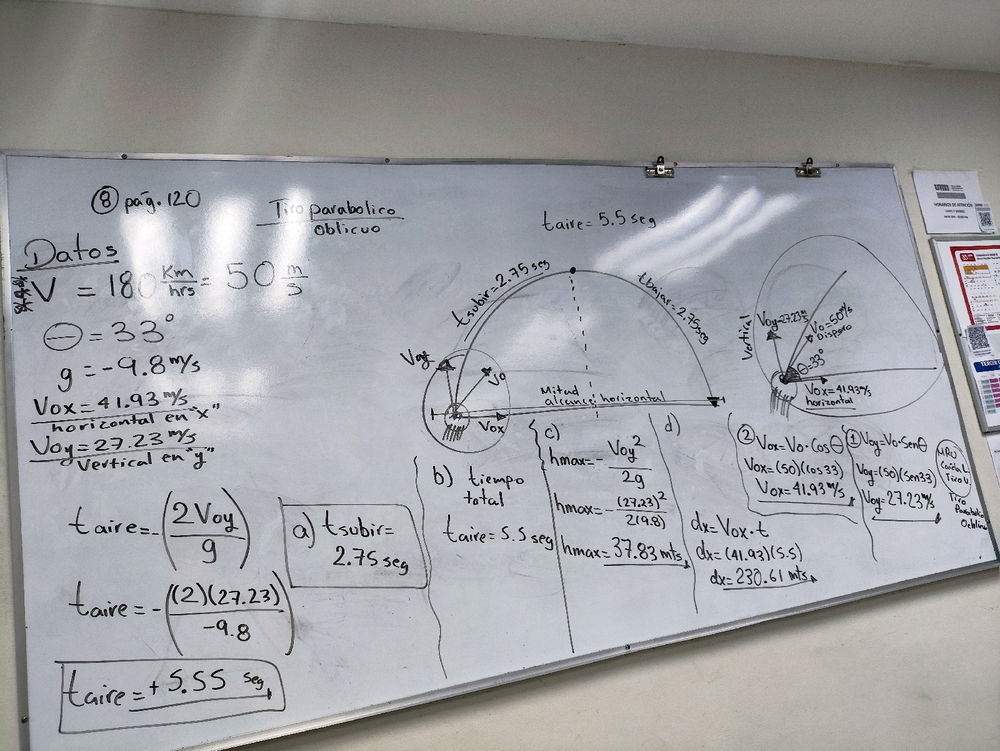 ⑧ pág. 120
Tiro parabolico
Oblicuo
Datos
V = 180 Km/hrs = 50 m/s
θ = 33°
g = -9.8 m/s
Vox = 41.93 m/s
horizontal en "x"
Voy = 27.23 m/s
Vertical en "y"
taire = -(2Voy/g)
taire = -((2)(27.23)/-9.8)
taire = + 5.55 seg
a) tsubir =
2.75 seg
taire = 5.5 seg
tsubir = 2.75 seg
tbajar = 2.75 seg
Voy
Vo
Vox
Mitad
alcance horizontal
b) tiempo
total
taire = 5.5 seg
c)
hmax = - Voy²/2g
hmax = - (27.23)²/2(9.8)
hmax = 37.83 mts
d)
dx = Vox · t
dx = (41.93)(5.5)
dx = 230.61 mts
Vertical
Voy = 27.23 m/s
Vo = 50 m/s
Disparo
θ = 33°
Vox = 41.93 m/s
horizontal
② Vox = Vo · Cos θ
Vox = (50)(cos 33)
Vox = 41.93 m/s
① Voy = Vo · Sen θ
Voy = (50)(sen 33)
Voy = 27.23 m/s
MRU
Caida L.
Tiro V.
Tiro
Parabolico
unm
HORARIOS DE ATENCIÓN